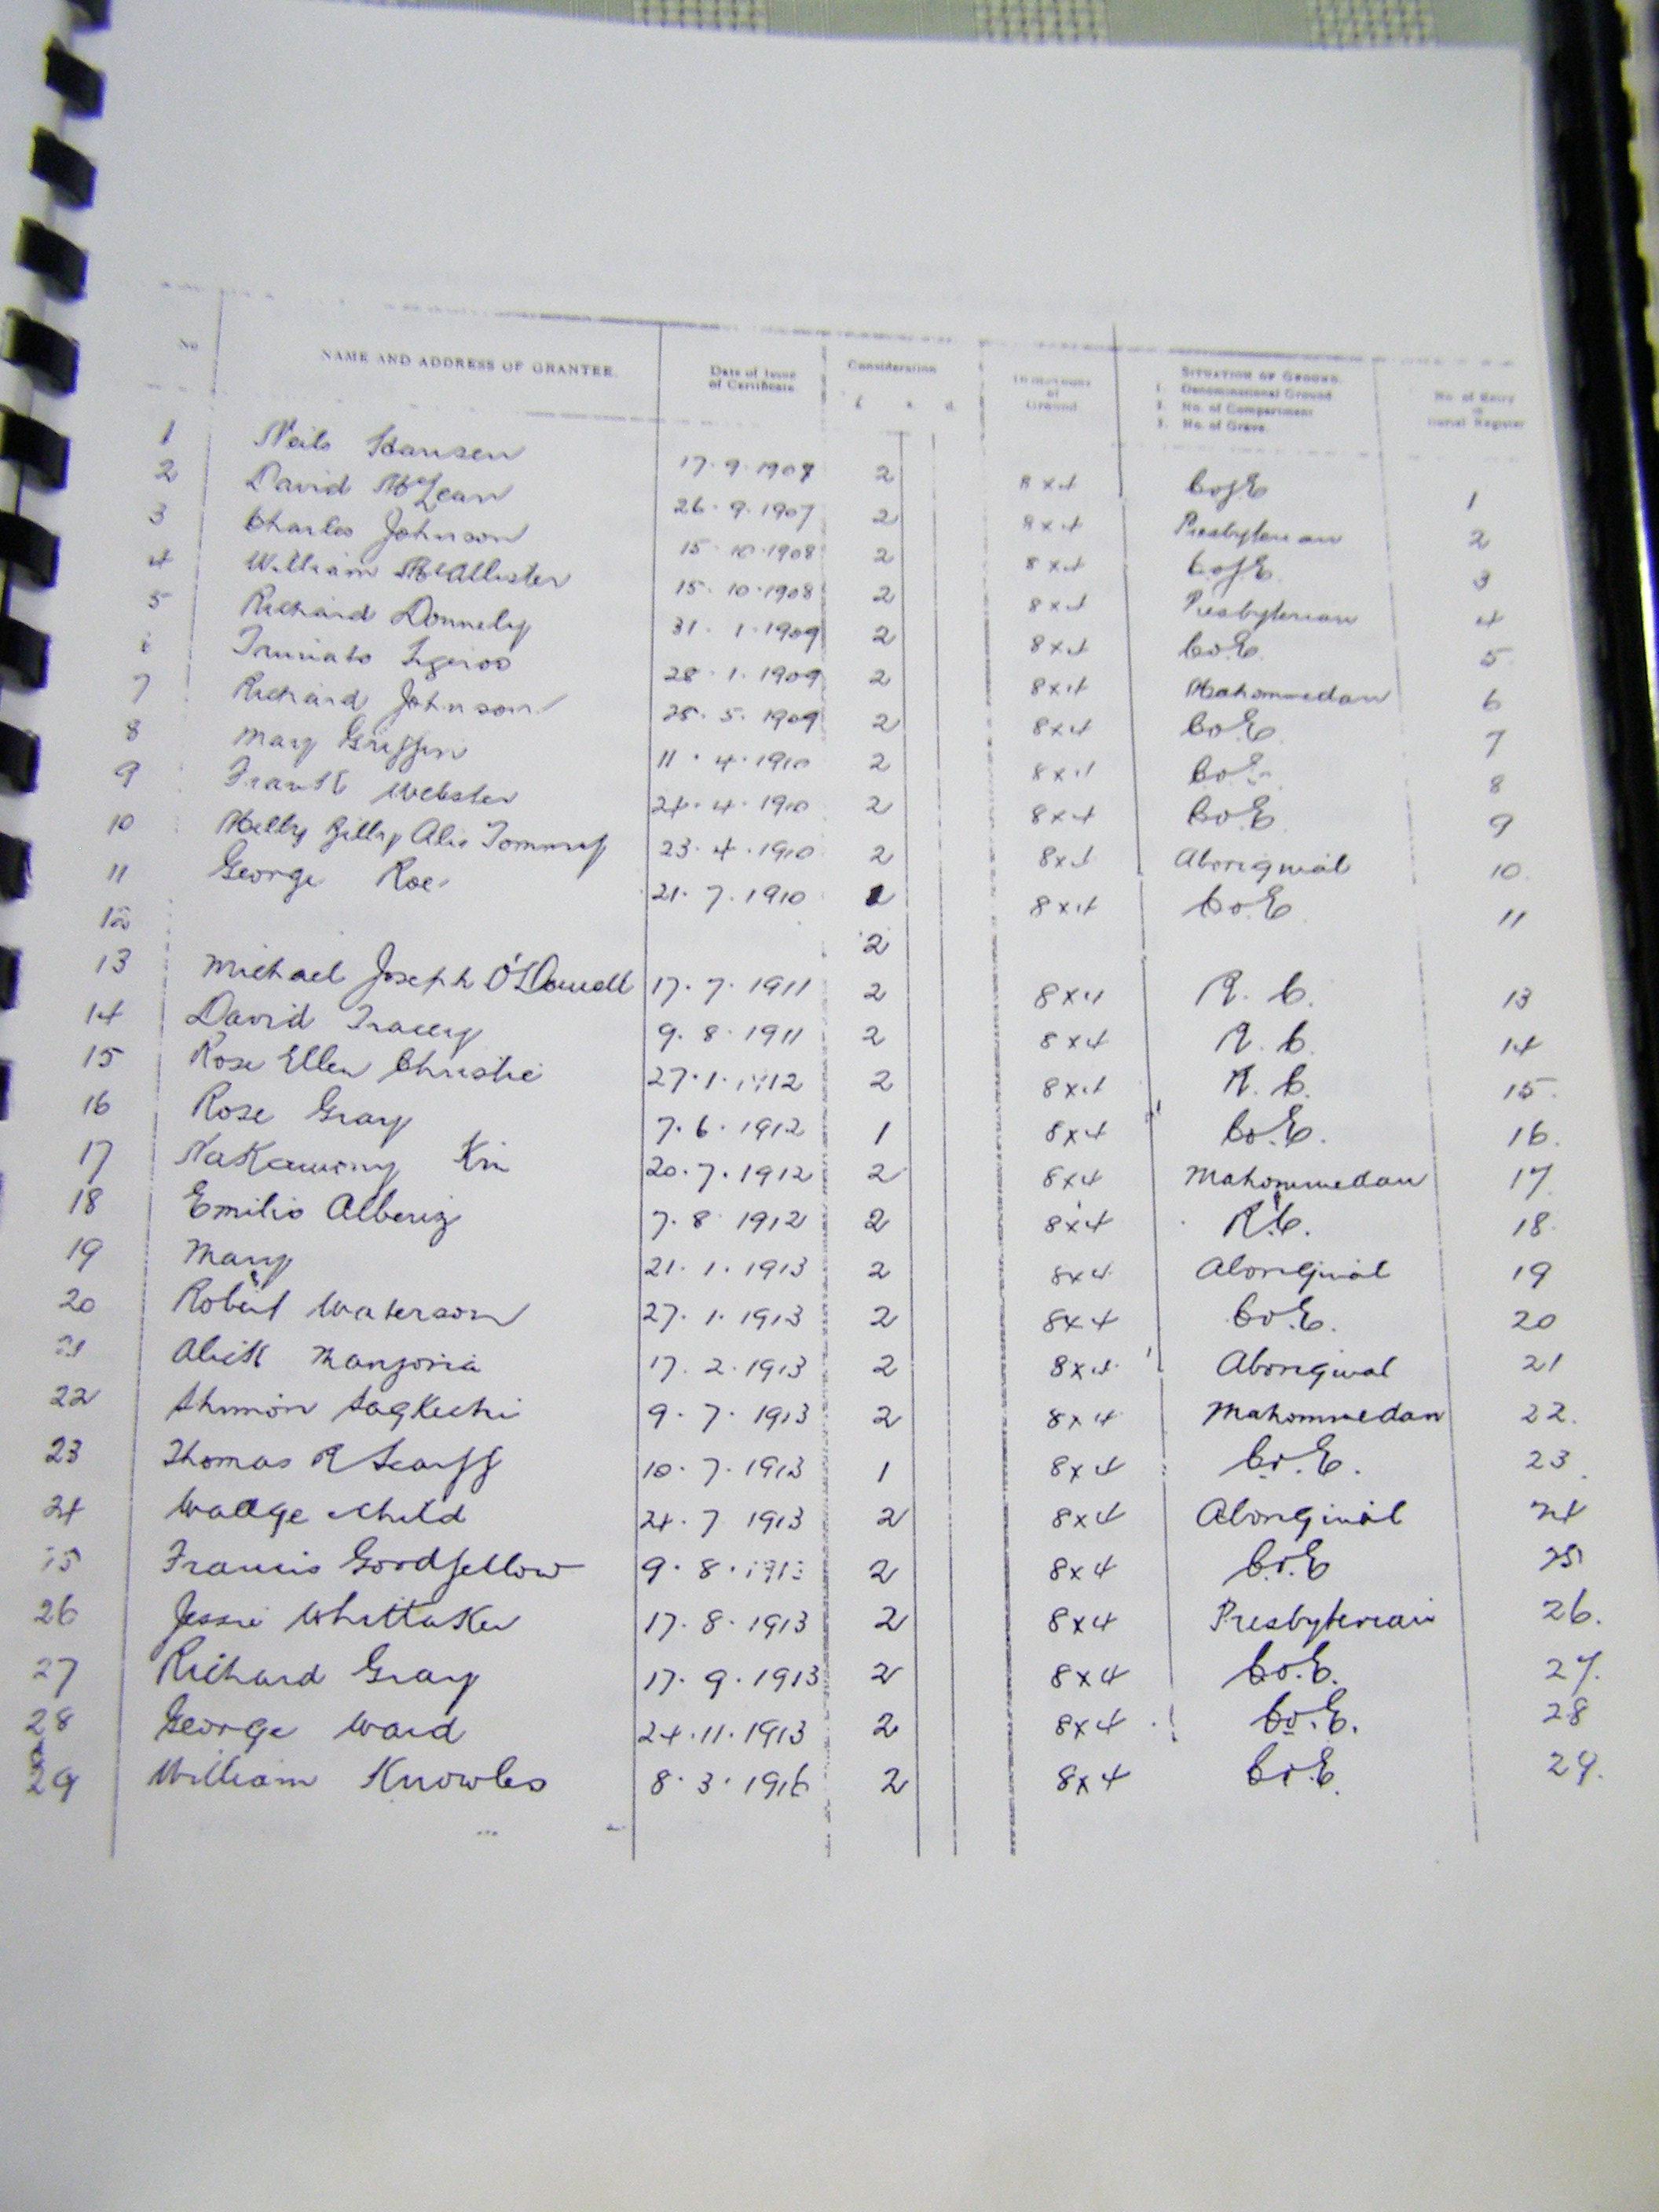 No NAME AND ADDRESS OF GRANTEE. Date of Issue of Certificate Consideration £ s. d. Dimensions of Ground SITUATION OF GROUND. 1. Denominational Ground 2. No. of Compartment 3. No. of Grave. No. of Entry in Burial Register
1 Neils Hansen 17.9.1907 2 8x4 CofE 1
2 David McLean 26.9.1907 2 8x4 Presbyterian 2
3 Charles Johnson 15.10.1908 2 8x4 CofE 3
4 William McAllister 15.10.1908 2 8x4 Presbyterian 4
5 Richard Donnely 31.1.1909 2 8x4 CoE. 5
6 28.1.1909 2 8x4 Mahommedan 6
7 Richard Johnson 28.5.1909 2 8x4 CoE. 7
8 Mary Griffin 11.4.1910 2 8x4 CoE. 8
9 Frank Webster 24.4.1910 2 8x4 CoE 9
10 Billy Alis Tommy 23.4.1910 2 8x4 Aboriginal 10.
11 George Roe 21.7.1910 8x4 Co.E 11
12 2
13 Michael Joseph O'Donnell 17.7.1911 2 8x4 R.C. 13
14 David Tracey 9.8.1911 2 8x4 R.C. 14
15 Rose Ellen Christie 27.1.1912 2 8x4 R.C. 15.
16 Rose Gray 7.6.1912 1 8x4 Co.E. 16.
17 20.7.1912 2 8x4 Mahommedan 17.
18 Emilio Alberiz 7.8.1912 2 8x4 R.C. 18.
19 Mary 21.1.1913 2 8x4 Aboriginal 19
20 Robert Waterson 27.1.1913 2 8x4 Co.E. 20
21 Alick 17.2.1913 2 8x4 Aboriginal 21
22 9.7.1913 2 8x4 Mahommedan 22.
23 Thomas R Scarff 10.7.1913 1 8x4 Co.E. 23.
24 Child 24.7.1913 2 8x4 Aboriginal 24
25 Francis Goodfellow 9.8.1913 2 8x4 Co.E 25
26 Jessie Whittaker 17.8.1913 2 8x4 Presbyterian 26.
27 Richard Gray 17.9.1913 2 8x4 Co.E. 27.
28 George Ward 24.11.1913 2 8x4 Co.E. 28
29 William Knowles 8.3.1916 2 8x4 Co.E. 29.